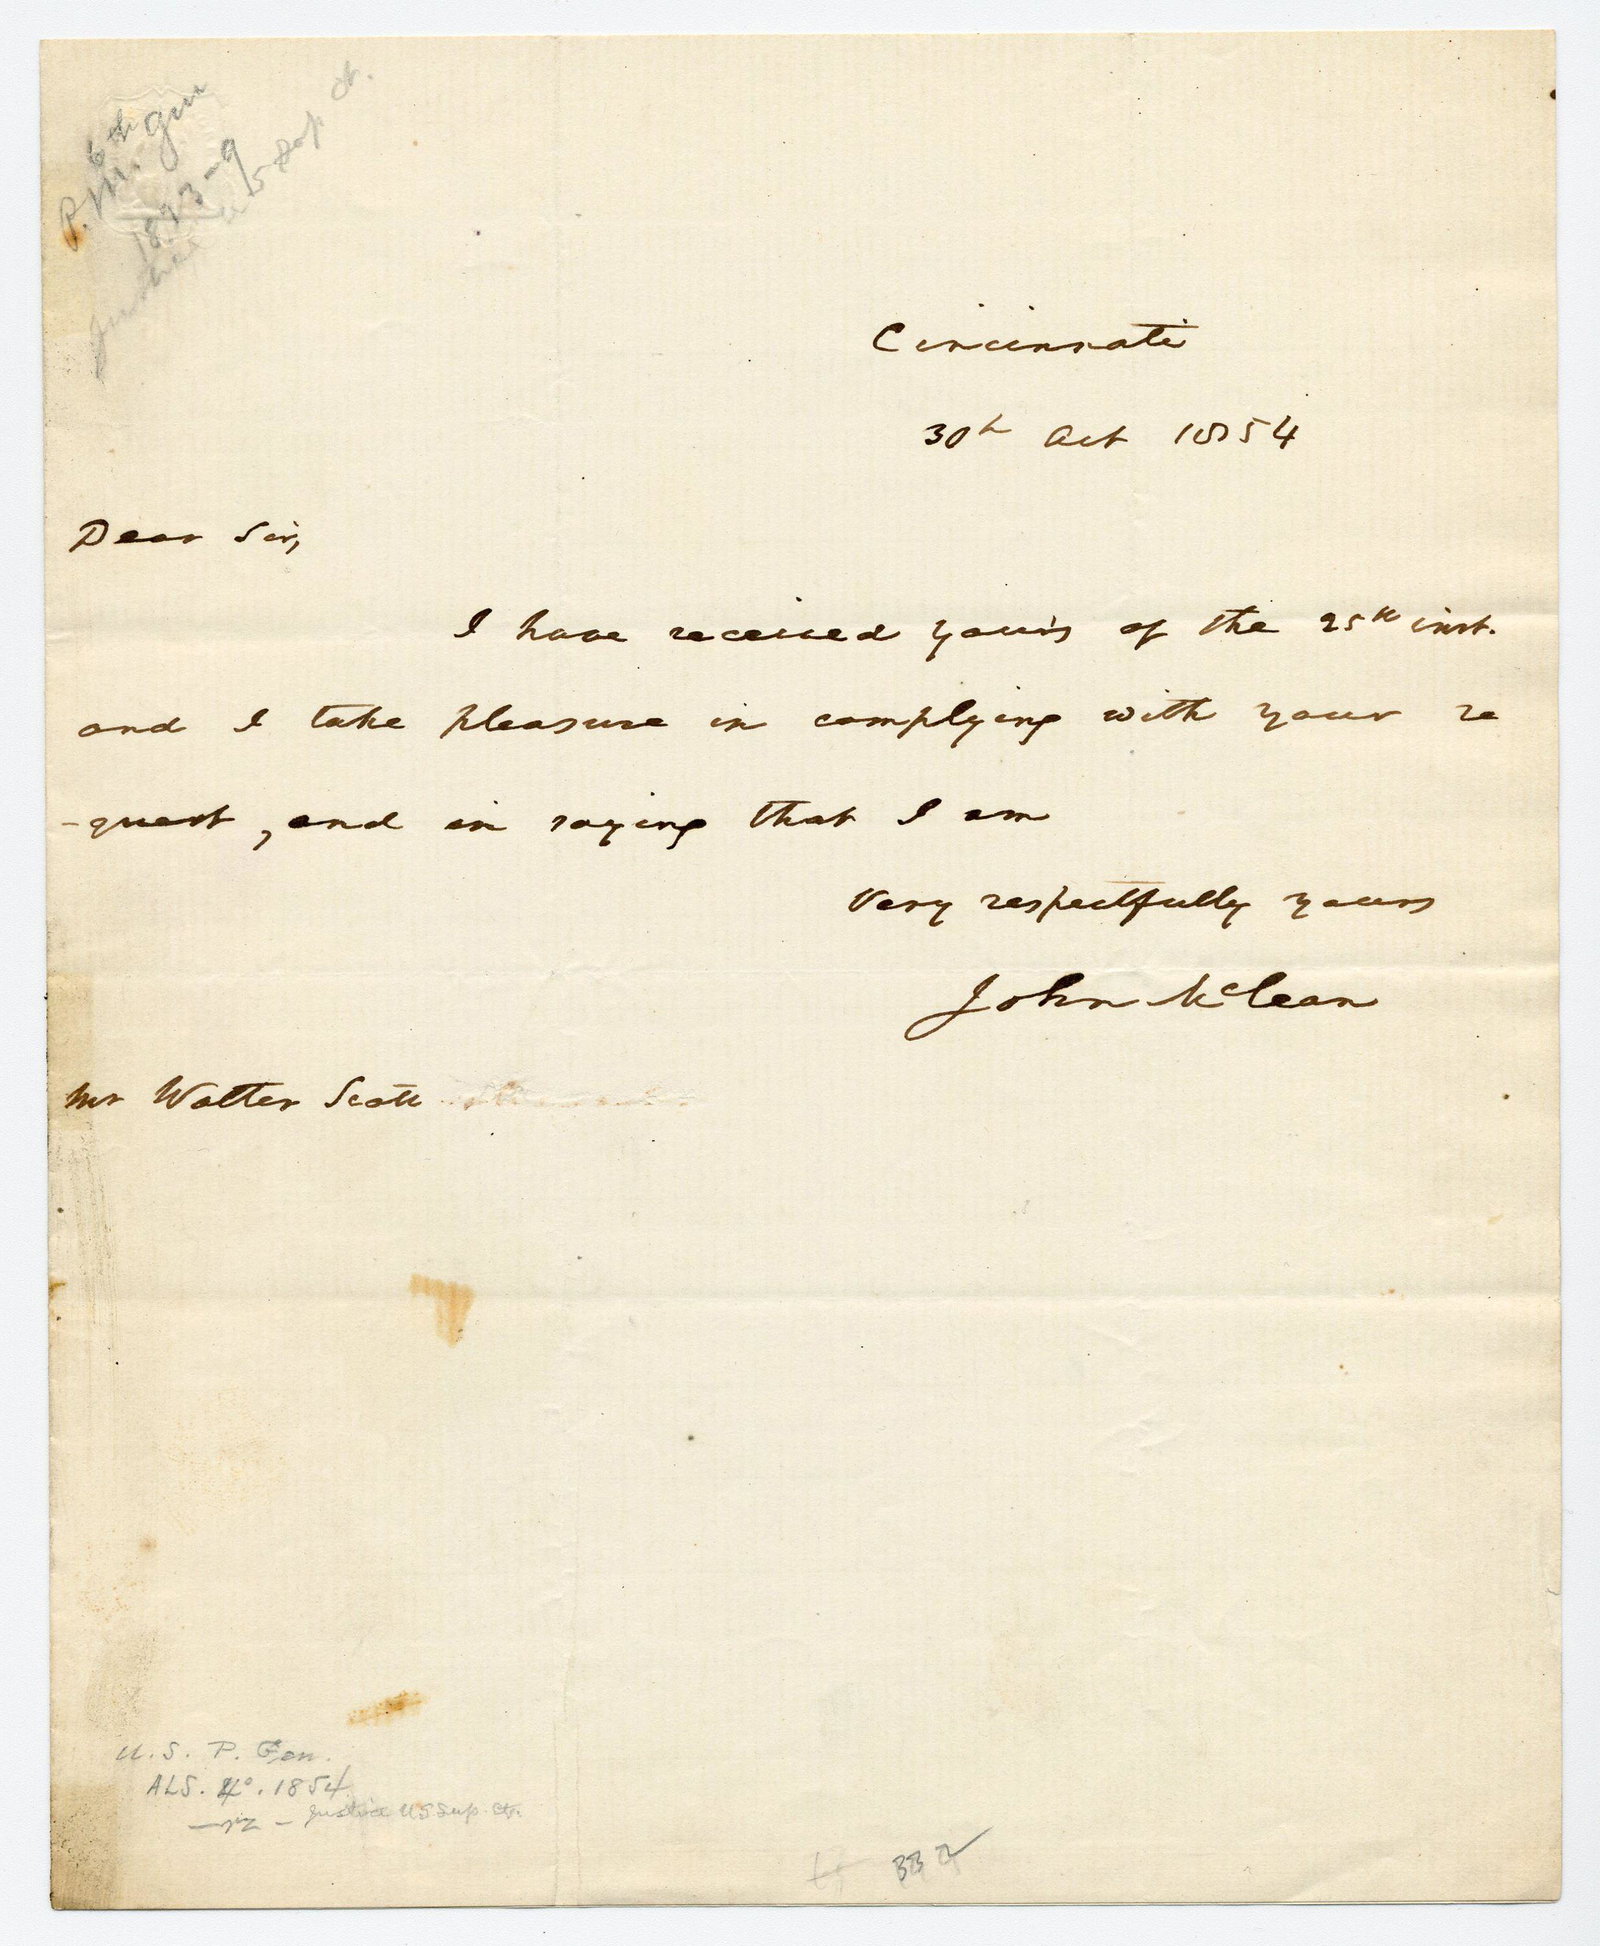 6th
P. M. Gen
1823-9
Justice U S Sup Ct.
Cincinnati
30th Oct 1854
Dear Sir,
I have received yours of the 25th inst.
and I take pleasure in complying with your re
-quest, and in saying that I am
Very respectfully yours
John McLean
Mr Walter Scott
U. S. P. Gen.
ALS. 4o. 1854
Justice US Sup. Ct.